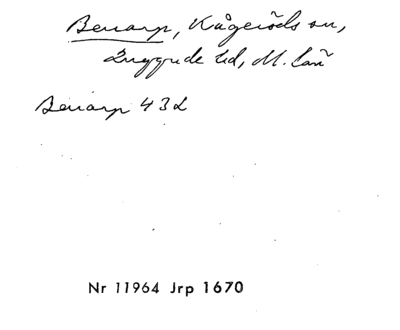 Benarp, Kågeröds sn,
Luggude hd, M. län
Benarp 432
Nr 11964 Jrp 1670